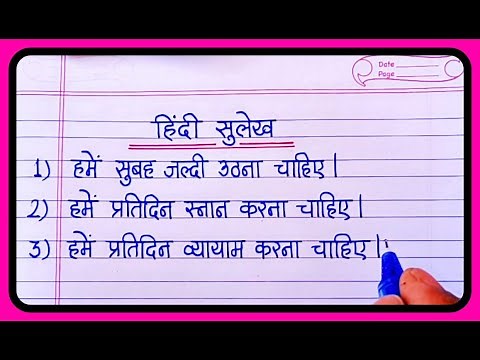 Date
Page
हिंदी सुलेख
1) हमें सुबह जल्दी उठना चाहिए।
2) हमें प्रतिदिन स्नान करना चाहिए।
3) हमें प्रतिदिन व्यायाम करना चाहिए।